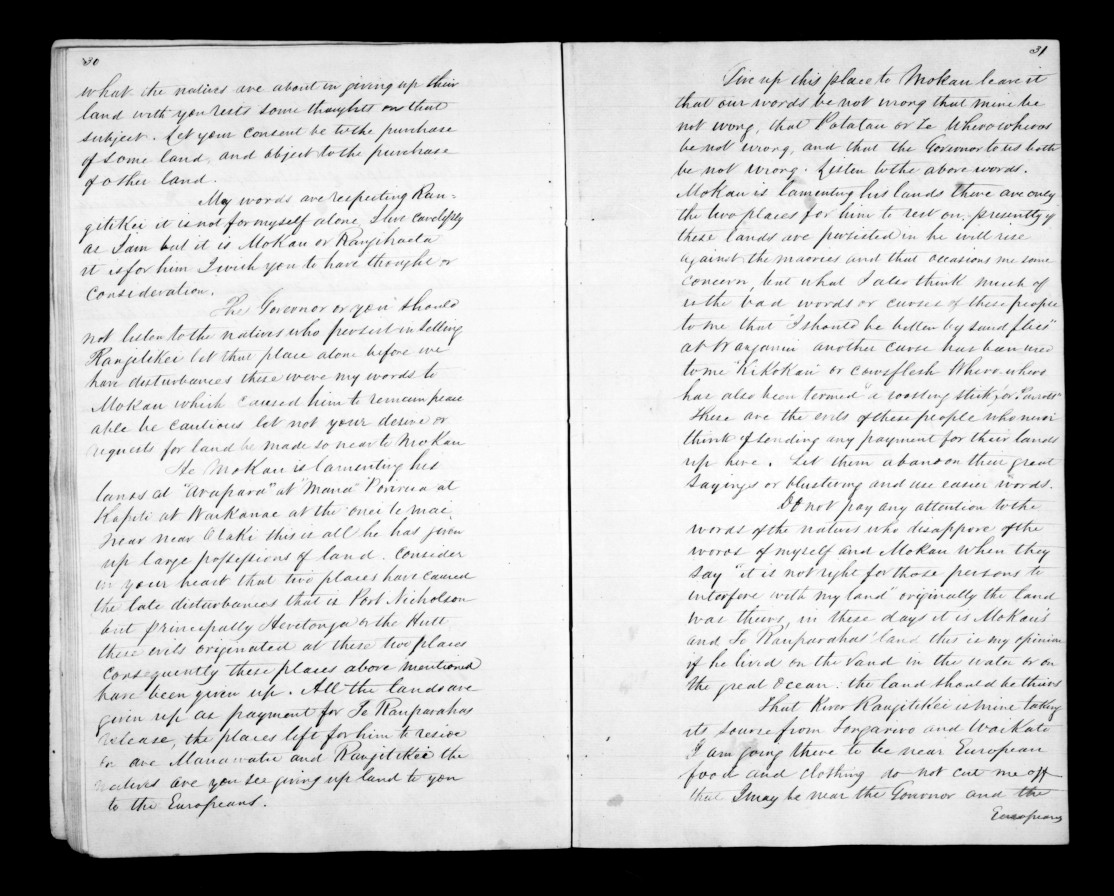 30
what the natives are about in giving up their
land with you rests some thoughts on that
subject. Let your consent be to the purchase
of some land, and object to the purchase
of other land.
My words are respecting Ran-
gitikei it is not for myself alone, I live carelessly
as I am but it is Mokau or Rangihaeata
it is for him I wish you to have thought or
consideration.
The Governor or you should
not listen to the natives who persist in selling
Rangitikei let that place alone before we
have disturbances these were my words to
Mokau which caused him to remain peace
able be cautious let not your desire or
requests for land be made so near to Mokau
Te Mokau is lamenting his
lands at "Arapara" at "Mana" Porirua at
Kapiti at Waikanae at the one
near near Otaki this is all he has given
up large possessions of land. Consider
in your heart that two places have caused
the late disturbances that is Port Nicholson
but principally Heretonga or the Hutt
these evils originated at these two places
consequently these places above mentioned
have been given up. All the lands are
given up as payment for Te Rauparahas
release, the places left for him to reside
on are Manawatu and Rangitikei the
natives are you see giving up land to you
to the Europeans.
31
Give up this place to Mokau leave it
that our words be not wrong that mine be
not wrong, that Potatau or Te Wherowheros
be not wrong, and that the Governor to us both
be not wrong. Listen to the above words.
Mokau is lamenting his lands there are only
the two places for him to rest on, presently if
these lands are persisted in he will rise
against the maories and that occasions me some
concern, but what I also think much of
is the bad words or curses of these people
to me that "I should be bitten by sand flies"
at Wanganui another curse has been used
to me "Kikokau" or cowsflesh Whero whero
has also been termed "a roasting stick or Parrots"
These are the evils of these people who never
think of sending any payment for their lands
up here. Let them abandon their great
sayings or blustering and use easier words.
Do not pay any attention to the
words of the natives who disapprove of the
words of myself and Mokau when they
say "it is not right for those persons to
interfere with my land" originally the land
was theirs, in these days it is Mokau's
and Te Rauparahas' land this is my opinion
if he lived on the land in the water or on
the great Ocean: the land should be theirs
That River Rangitikei is mine taking
its source from Tongariro and Waikato
I am going there to be near European
food and clothing do not cut me off
that I may be near the Governor and the
Europeans